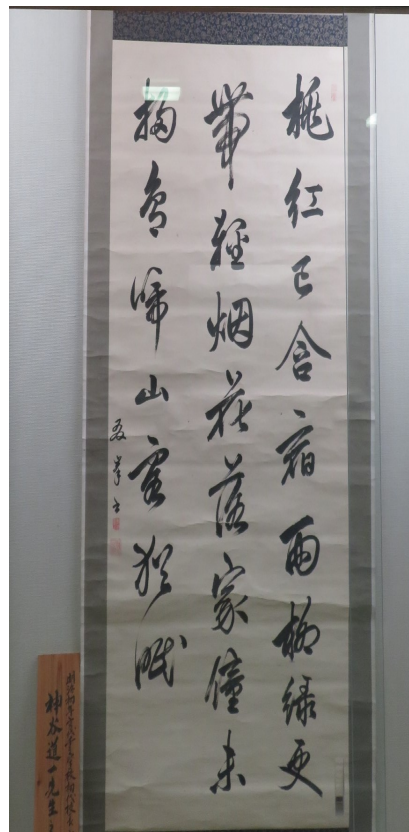 桃紅已含宿雨柳緑更
帶輕烟花落家僮未
掃鳥啼山客猶眠
神谷道一先生